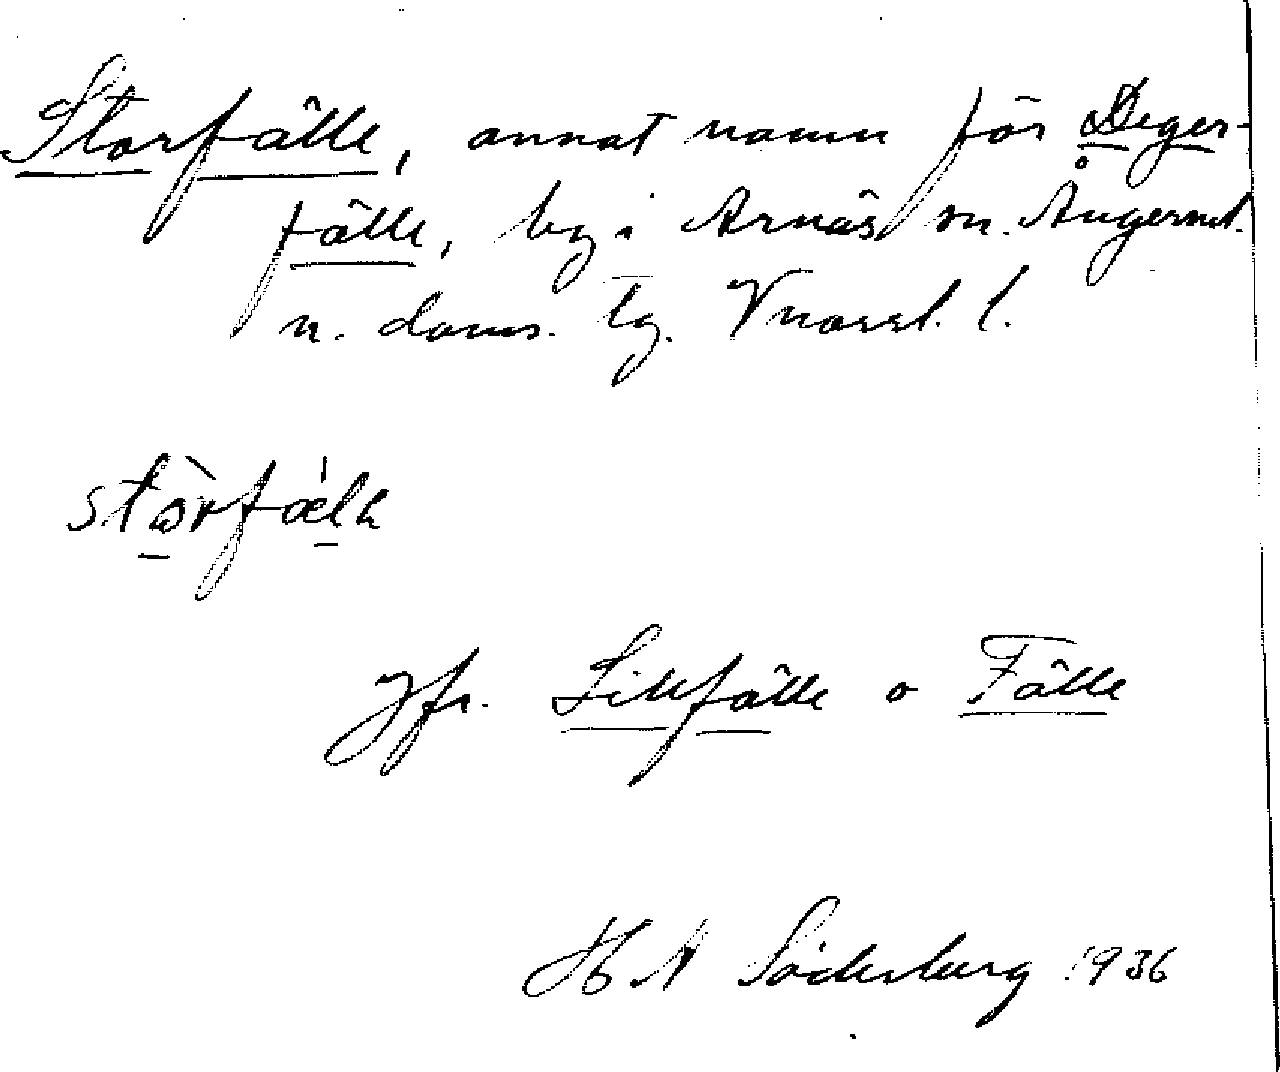 Storfälle, annat namn för Deger-
fälle, by i Arnäs sn. Ångerml.
n. doms. lg. Vnorrl. l.
Jfr. Lillfälle o Fälle
H A Söderberg 1936